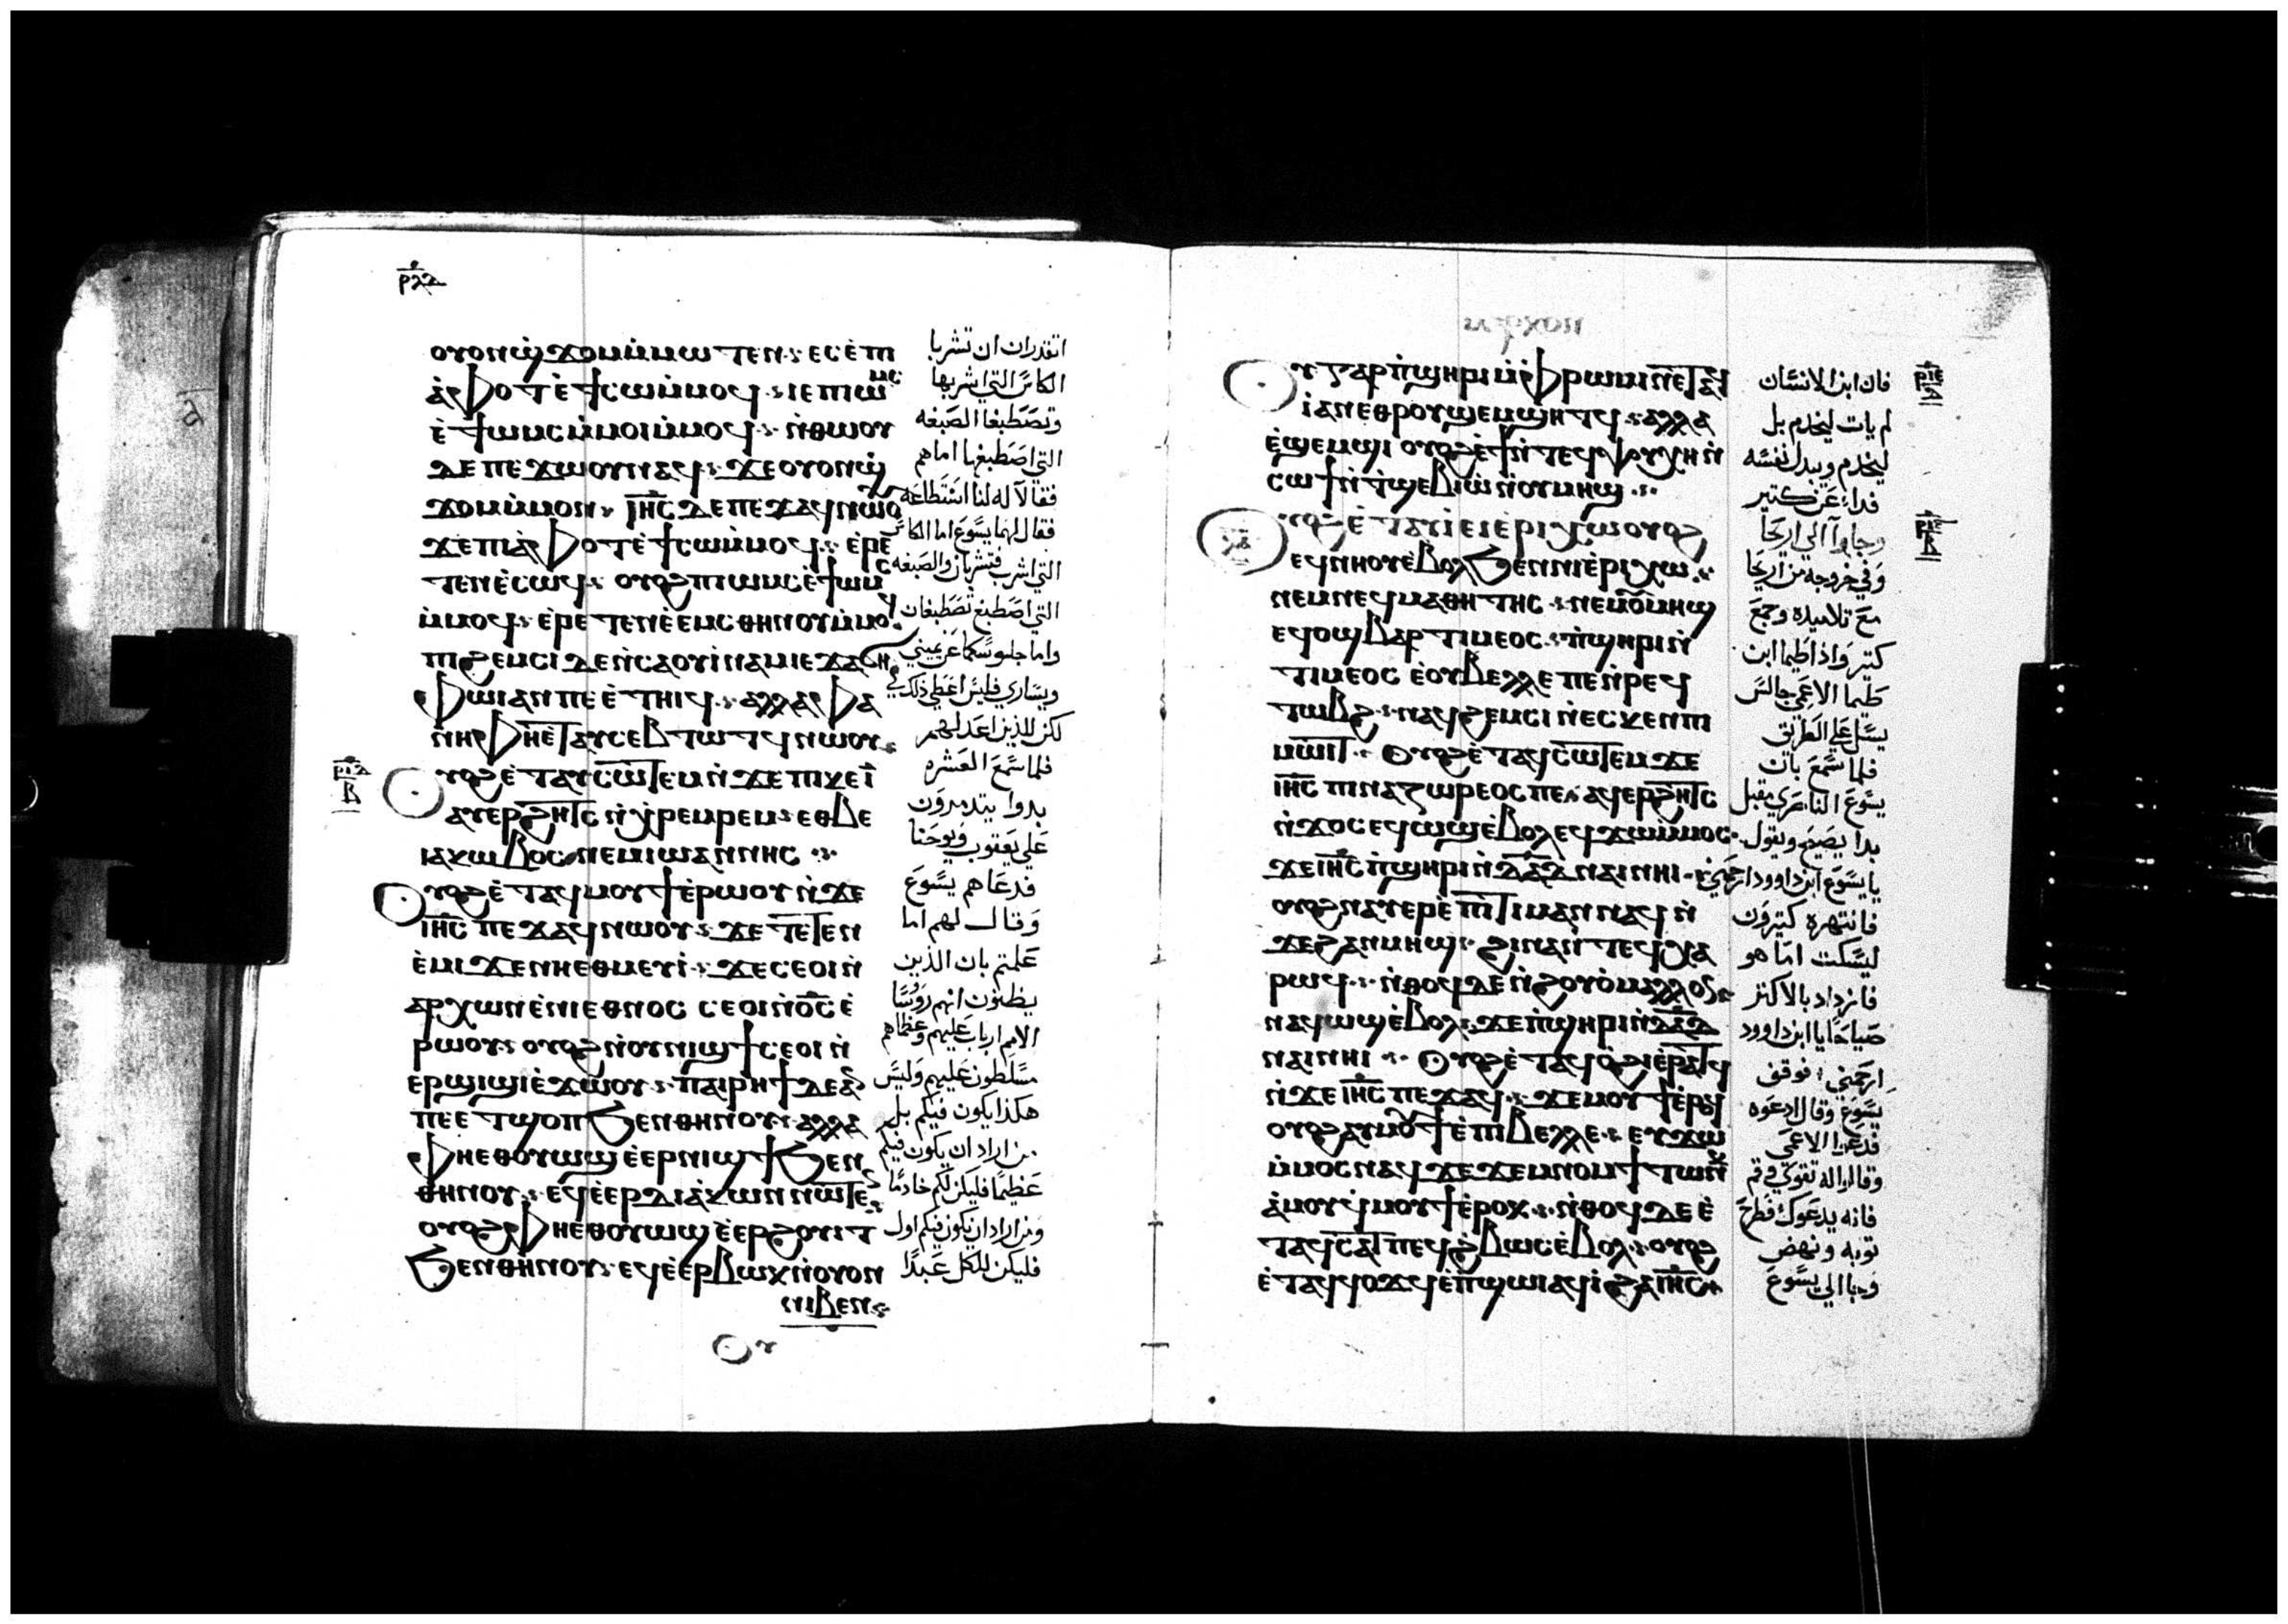 ⲣⲗⲇ
ⲟⲩⲟⲛϣϫⲟⲙⲙⲙⲱⲧⲉⲛ ⲉⲥⲉⲡⲓ
ⲁⲫⲟⲧ ⲉϯⲥⲱⲙⲙⲟϥ ⲓⲉⲡⲓⲱⲙⲥ
ⲉϯⲱⲙⲥⲙⲙⲟⲓⲙⲙⲟϥ ⲛⲑⲱⲟⲩ
ⲇⲉⲡⲉϫⲱⲟⲩⲛⲁϥ ϫⲉⲟⲩⲟⲛϣ
ϫⲟⲙⲙⲙⲟⲛ ⲓⲏⲥ ⲇⲉⲡⲉϫⲁϥⲛⲱⲟⲩ
ϫⲉⲡⲓⲁⲫⲟⲧ ⲉϯⲥⲱⲙⲙⲟϥ ⲉⲣⲉ
ⲧⲉⲛⲉⲥⲱϥ ⲟⲩⲟϩⲡⲓⲱⲙⲥⲉϯⲱⲙⲥ
ⲙⲙⲟϥ ⲉⲣⲉⲧⲉⲛⲉⲉⲙⲥⲑⲏⲛⲟⲩⲙⲙⲟϥ
ⲡϩⲉⲙⲥⲓ ⲇⲉⲛⲥⲁⲟⲩⲓⲛⲁⲙⲓⲉϫⲁϭⲏ
ⲫⲱⲓⲁⲛⲡⲉⲉⲧⲏⲓϥ ⲁⲗⲗⲁⲫⲁ
ⲛⲏⲫⲏⲉⲧⲁⲩⲥⲉⲃⲧⲱⲧϥⲛⲱⲟⲩ
ⲟⲩⲟϩⲉⲧⲁⲩⲥⲱⲧⲉⲙⲛϫⲉⲡⲓⲕⲉⲓ
ⲁⲩⲉⲣϩⲏⲧⲥ ⲛⲭⲣⲉⲙⲣⲉⲙ ⲉⲑⲃⲉ
ⲓⲁⲕⲱⲃⲟⲥ ⲛⲉⲙⲓⲱⲁⲛⲛⲏⲥ
ⲟⲩⲟϩⲉⲧⲁϥⲙⲟⲩϯⲉⲣⲱⲟⲩ ⲛϫⲉ
ⲓⲏⲥ ⲡⲉϫⲁϥⲛⲱⲟⲩ ϫⲉⲧⲉⲧⲉⲛ
ⲉⲙⲓ ϫⲉⲛⲏⲉⲑⲙⲉⲩⲓ ϫⲉⲥⲉⲟⲓⲛ
ⲁⲣⲭⲱⲛⲉⲛⲓⲉⲑⲛⲟⲥ ⲥⲉⲟⲓⲛⲟⲥⲉ
ⲣⲱⲟⲩ ⲟⲩⲟϩⲛⲟⲩⲛⲓϣϯⲥⲉⲟⲓⲛ
ⲉⲣϣⲓϣⲓⲉϫⲱⲟⲩ ⲡⲁⲓⲣⲏϯⲇⲉⲁⲛ
ⲡⲉⲉⲧϣⲟⲡϧⲉⲛⲑⲏⲛⲟⲩ ⲁⲗⲗⲁ
ⲫⲏⲉⲑⲟⲩⲱϣⲉⲉⲣⲛⲓϣϯϧⲉⲛ
ⲑⲏⲛⲟⲩ ⲉϥⲉⲉⲣⲇⲓⲁⲕⲱⲛⲛⲱⲧⲉⲛ
ⲟⲩⲟϩⲫⲏⲉⲑⲟⲩⲱϣⲉⲉⲣϩⲟⲩⲓⲧ
ϧⲉⲛⲑⲏⲛⲟⲩ ⲉϥⲉⲉⲣⲃⲱⲕⲛⲟⲩⲟⲛ
ⲛⲓⲃⲉⲛ
ⲟⲩ
اتقدران ان تشربا
الكاس التي اشربها
وتصطبغا الصبغه
التي اصطبغها اما هم
فقالا له لنا استطاعه
فقال لهما يسوع اما الكاس
التي اشرب فتشربان والصبغه
التي اصطبغ تصطبغان
واما جلوسكما عن يميني
ويساري فليس اعطي ذلك
لكن للذين اعد لهم
فلما سمع العشره
بدوا يتدمرون
علي يعقوب ويوحنا
فدعاهم يسوع
وقال لهم اما
علمتم بان الذين
يظنون انهم روسا
الامم ارباب عليهم وعظماهم
مسلطون عليهم وليس
هكذا يكون فيكم بل
من اراد ان يكون فيكم
عظيما فليكن لكم خادما
ومن اراد ان يكون فيكم اول
فليكن للكل عبدا
ⲟⲩⲅⲁⲣⲡϣⲏⲣⲓⲙⲫⲣⲱⲙⲓⲛⲉⲧⲁϥ
ⲓⲁⲛⲉⲑⲣⲟⲩϣⲉⲙϣⲏⲧϥ ⲁⲗⲗⲁ
ⲉϣⲉⲙϣⲓ ⲟⲩⲟϩⲉϯⲛⲧⲉϥⲯⲩⲭⲏⲛ
ⲥⲱϯⲛⲧϣⲉⲃⲓⲱⲛⲟⲩⲙⲏϣ
ⲟⲩⲟϩⲉⲧⲁⲩⲓⲉⲓⲉⲣⲓⲭⲱⲟⲩⲟϩ
ⲉϥⲛⲏⲟⲩⲉⲃⲟⲗϧⲉⲛⲛⲓⲉⲣⲓⲭⲱ
ⲛⲉⲙⲛⲉϥⲙⲁⲑⲏⲧⲏⲥ ⲛⲉⲙⲟⲩⲙⲏϣ
ⲉϥⲟϣⲃⲁⲣⲧⲓⲙⲉⲟⲥ ⲡϣⲏⲣⲓⲛ
ⲧⲓⲙⲉⲟⲥ ⲉⲟⲩⲃⲉⲗⲗⲉⲡⲉⲛⲣⲉϥ
ⲧⲱⲃϩ ⲛⲁϥϩⲉⲙⲥⲓ ⲛⲉⲥⲕⲉⲛⲡⲓ
ⲙⲱⲓⲧ ⲟⲩⲟϩⲉⲧⲁϥⲥⲱⲧⲉⲙϫⲉ
ⲓⲏⲥ ⲡⲓⲛⲁⲍⲱⲣⲉⲟⲥⲡⲉ ⲁϥⲉⲣϩⲏⲧⲥ
ⲛϫⲟⲥ ⲉϥⲱϣⲉⲃⲟⲗⲉϥϫⲱⲙⲙⲟⲥ
ϫⲉⲓⲏⲥ ⲡϣⲏⲣⲓⲛⲇⲁⲇ ⲛⲁⲓⲛⲏⲓ
ⲟⲩⲟϩⲛⲁⲩⲉⲣⲉⲡⲓⲧⲓⲙⲁⲛⲛⲁϥⲛ
ϫⲉϩⲁⲛⲙⲏϣ ϩⲓⲛⲁⲛⲧⲉϥⲭⲁ
ⲣⲱϥ ⲛⲑⲟϥⲇⲉⲛϩⲟⲩⲟⲙⲁⲗⲗⲟⲛ
ⲛⲁϥⲱϣⲉⲃⲟⲗ ϫⲉⲡϣⲏⲣⲓⲛⲇⲁⲇ
ⲛⲁⲓⲛⲏⲓ ⲟⲩⲟϩⲉⲧⲁϥⲟϩⲓⲉⲣⲁⲧϥ
ⲛϫⲉⲓⲏⲥ ⲡⲉϫⲁϥ ϫⲉⲙⲟⲩϯⲉⲣⲟϥ
ⲟⲩⲟϩⲁⲩⲙⲟⲩϯⲉⲡⲓⲃⲉⲗⲗⲉ ⲉⲩϫⲱ
ⲙⲙⲟⲥⲛⲁϥϫⲉϫⲉⲙⲛⲟⲙϯⲧⲱⲛⲕ
ⲁⲙⲟⲩϥⲙⲟⲩϯⲉⲣⲟⲕ ⲛⲑⲟϥⲇⲉⲉ
ⲧⲁϥⲥⲁⲧⲡⲉϥϩⲃⲱⲥⲉⲃⲟⲗ ⲟⲩⲟϩ
ⲉⲧⲁϥϥⲟϫϥⲉⲡϣⲱⲓⲁϥⲓϩⲁⲓⲏⲥ
فان ابن الانسان
لم يات ليخدم بل
ليخدم ويبدل نفسه
فداء عن كتير
وجاوا الي اريحا
وفي خروجه من اريحا
مع تلاميده وجمع
كتير واذا طيما ابن
طيما الاعمي جالس
يسل علي الطريق
فلما سمع بان
يسوع الناصري مقبل
بدا يصيح ويقول
يا يسوع ابن داوود ارحمني
فانتهره كتيرون
ليسكت اما هو
فازداد بالاكتر
صياحا يا ابن داوود
ارحمني فوقف
يسوع وقال ادعوه
فدعوا الاعمي
وقالوا له تقوي قم
فانه يدعوك فطرح
توبه ونهض
وجا الي يسوع